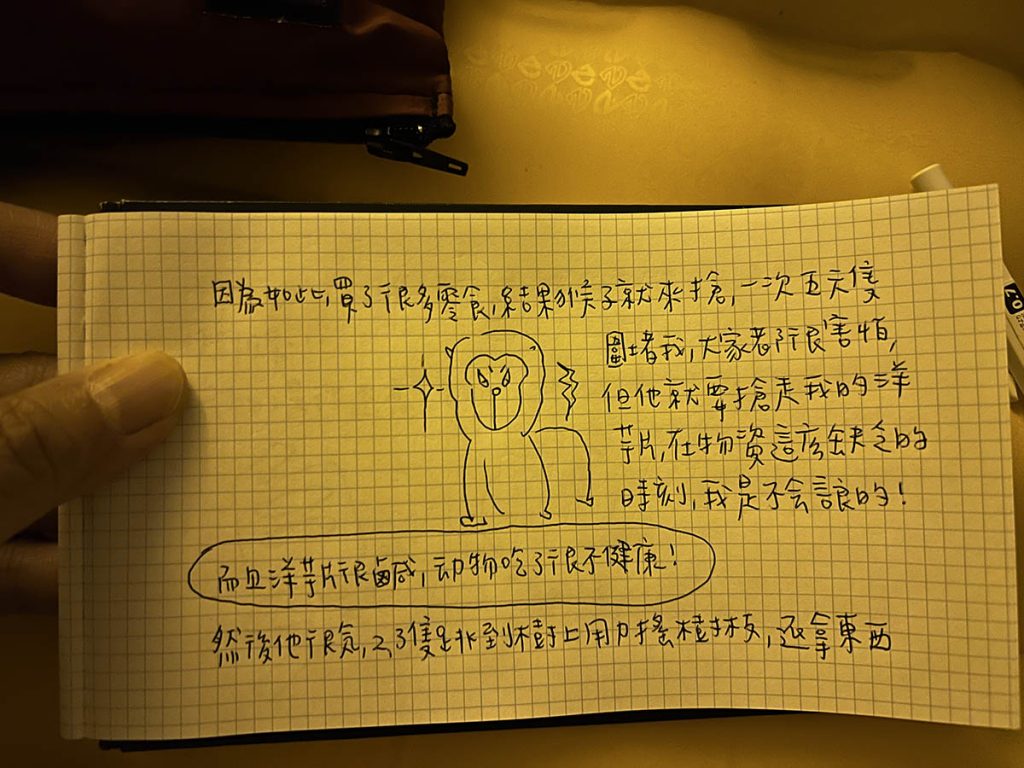 因為如此,買了很多零食,結果猴子就來搶,一次五六隻
圍堵我,大家都很害怕,
但他就要搶走我的洋
芋片,在物資這么缺乏的
時刻,我是不会讓的!
而且洋芋片很鹹,动物吃了很不健康!
然後他很気,2、3隻跳到樹上用力搖樹枝,还拿東西